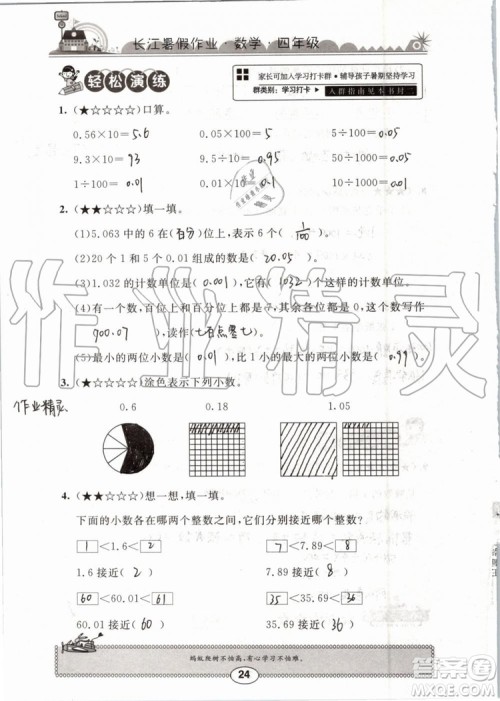 长江暑假作业·数学·四年级
轻松演练
家长可加入学习打卡群·辅导孩子暑期坚持学习
群类别：学习打卡 入群指南见本书封二
1. (★☆☆☆☆)口算。
0.56×10= 5.6 0.05×100= 5 5÷100= 0.05
9.3×10= 93 9.5÷10= 0.95 50÷1000= 0.05
1÷100= 0.01 0.01×10= 0.1 10÷1000= 0.01
2. (★★☆☆☆)填一填。
(1)5.063中的6在(百分)位上,表示6个( 1/100 )。
(2)20个1和5个0.01组成的数是( 20.05 )。
(3)1.032的计数单位是( 0.001 ),它有( 1032 )个这样的计数单位。
(4)有一个数,百位和百分位上都是7,其余各位上都是0,这个数写作
( 700.07 ),读作(七百点零七)。
(5)最小的两位小数是( 0.01 ),比1小的最大的两位小数是( 0.99 )。
3. (★☆☆☆☆)涂色表示下列小数。
作业精灵
0.6 0.18 1.05
4. (★★☆☆☆)想一想,填一填。
下面的小数各在哪两个整数之间,它们分别接近哪个整数?
1 <1.6< 2 7 <7.89< 8
1.6接近( 2 ) 7.89接近( 8 )
60 <60.01< 61 35 <35.69< 36
60.01接近( 60 ) 35.69接近( 36 )
蚂蚁爬树不怕高,有心学习不怕难。
24
作业精灵
答案圈